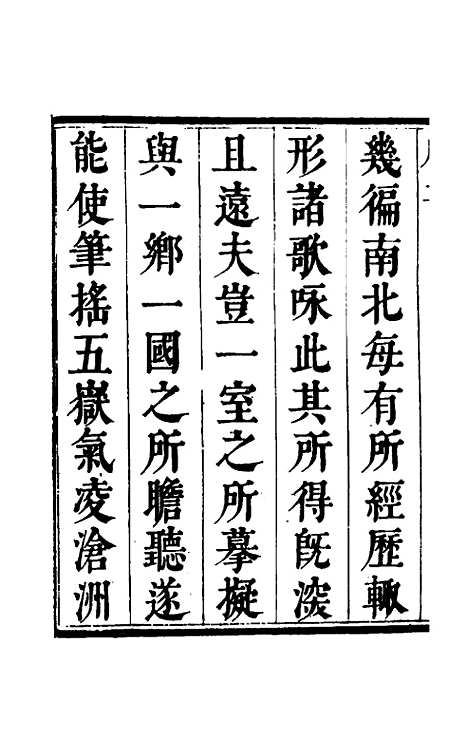 幾徧南北每有所經歷輙
形諸歌咏此其所得旣深
且遠夫豈一室之所摹擬
與一鄉一國之所瞻聽遂
能使筆搖五嶽氣凌滄洲